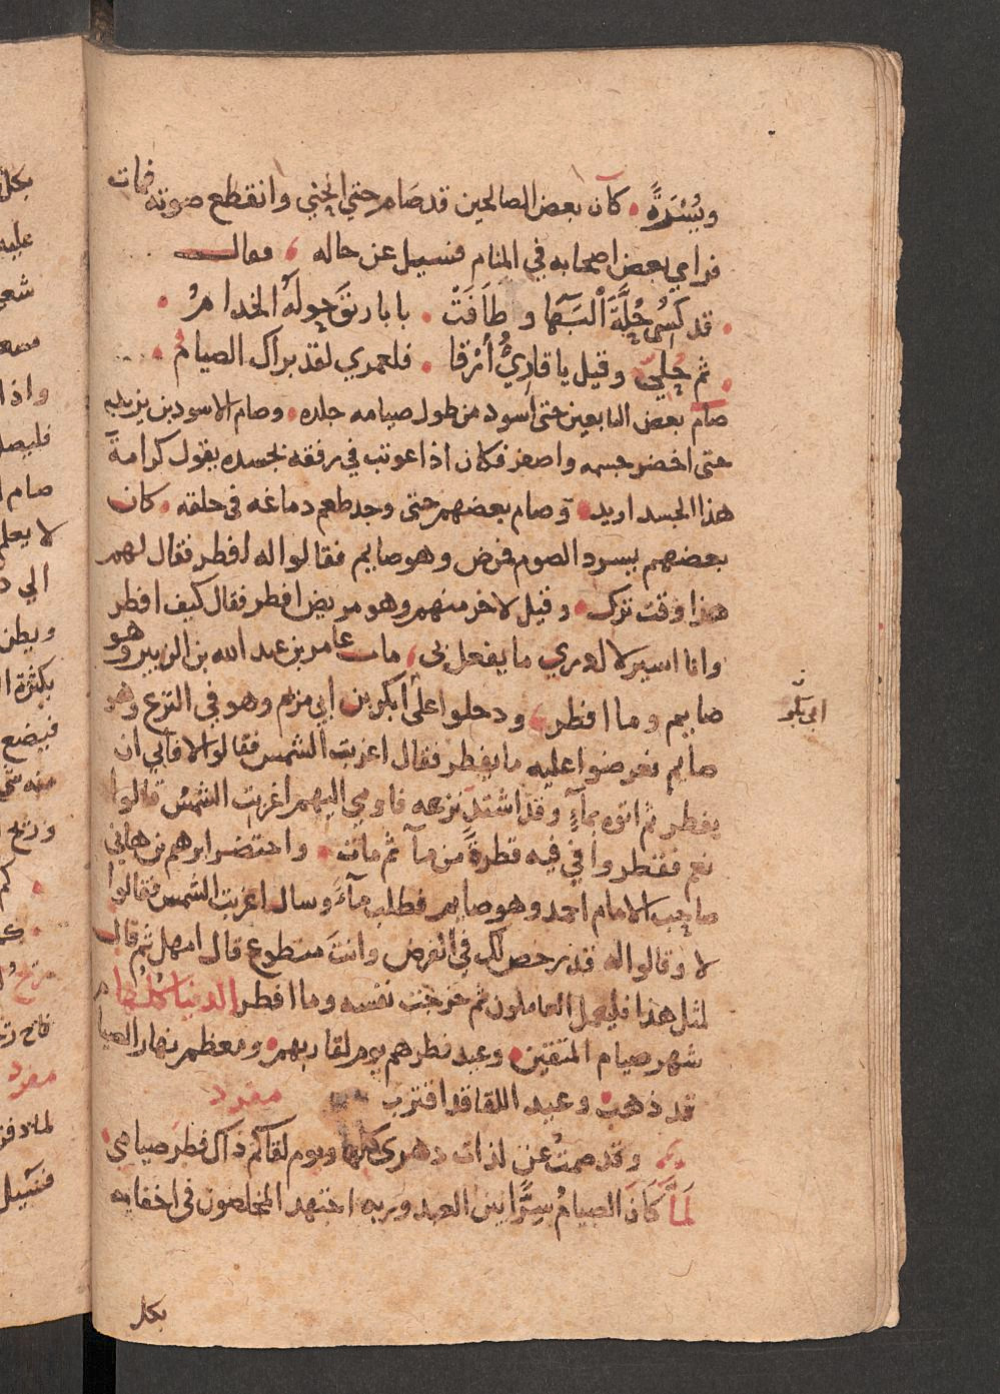 ويُسْرَةً كان بعض الصالحين قد صام حتي انحني وانقطع صوته فمات
فراي بعض اصحابه في المنام فسيل عن حاله فقال
قد كُسِي حُلَّةَ الْبَهَا وطَافَتْ بابارِيقَ حولَهُ الخدامُ
ثم حُلِيَ وقيل يا قارِيُّ ارْقا فلعمري لقد براك الصيامُ
صام بعض التابعين حتى اسود من طول صيامه جلده وصام الاسود بن يزيد
حتى اخضر جسمه واصفر فكان اذا عوتب في رفقه بجسده يقول كرامة
هذا الجسد اريد وصام بعضهم حتى وجد طعم دماغه في حلقه كان
بعضهم يسرد الصوم فمرض وهو صايم فقالوا له افطر فقال لهم
هذا وقت ترك وقيل لاخر منهم وهو مريض افطر فقال كيف افطر
وانا اسير لا ادري ما يفعل بي مات عامر بن عبد الله بن الزبير وهو
صايم وما افطر ودخلوا على ابكر بن ابي مريم وهو في النزع وهو
صايم فعرضوا عليه ما يفطر فقال اغربت الشمس فقالوا لا فابي ان
يفطر ثم اتوه بماءٍ وقد اشتد نزعه فاومي اليهم اغربت الشمس قالوا
نعم فقطروا في فيه قطرةً من مآ ثم مات واحتضر ابرهم بن هاني
صاحب الامام احمد وهو صايم فطلب مآءً وسال اغربت الشمس فقالوا
لا وقالوا له قد رخص لك في الفرض وانت متطوع قال امهل ثم قال
لمثل هذا فليعمل العاملون ثم خرجت نفسه وما افطر الدنيا كلها
شهر صيام المتقين وعيد فطرهم يوم لقا ربهم ومعظم نهار الصيام
قد ذهب وعيد اللقا قد اقترب مفرد
وقد صمتُ عن لذات دهري كلها ويوم لقاكم ذاك فطر صيامي
لَمَّا كَانَ الصيامُ سِرًّا بين العبد وربه اجتهد المخلصون في اخفايه
بكل
ابي بكر